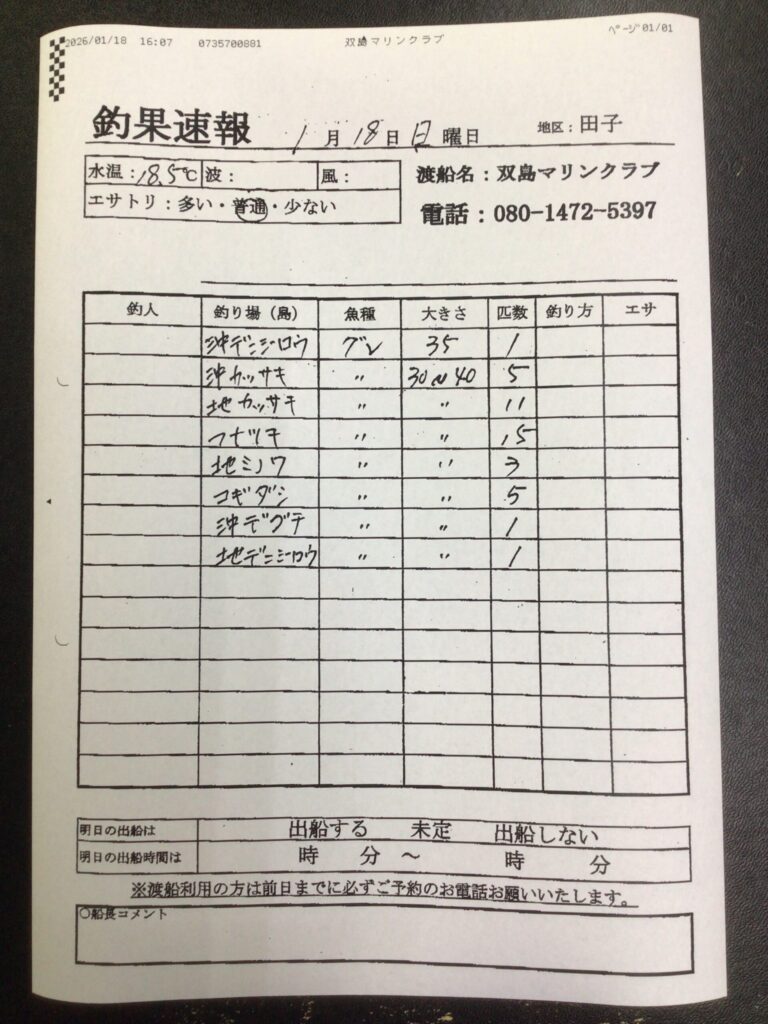 2026/01/18 16:07 0735700881 双島マリンクラブ ページ 01/01
釣果速報 1月18日 日曜日 地区：田子
水温：18.5℃ 波： 風：
エサトリ：多い・普通・少ない
渡船名：双島マリンクラブ
電話：080-1472-5397
釣人 釣り場（島） 魚種 大きさ 匹数 釣り方 エサ
沖デンジロウ グレ 35 1
沖カッサキ 〃 30~40 5
地カッサキ 〃 〃 11
フナツキ 〃 〃 15
地ミノワ 〃 〃 3
コギダシ 〃 〃 5
沖デグチ 〃 〃 1
地デンジロウ 〃 〃 1
明日の出船は 出船する 未定 出船しない
明日の出船時間は 時 分 ～ 時 分
※渡船利用の方は前日までに必ずご予約のお電話お願いいたします。
○船長コメント